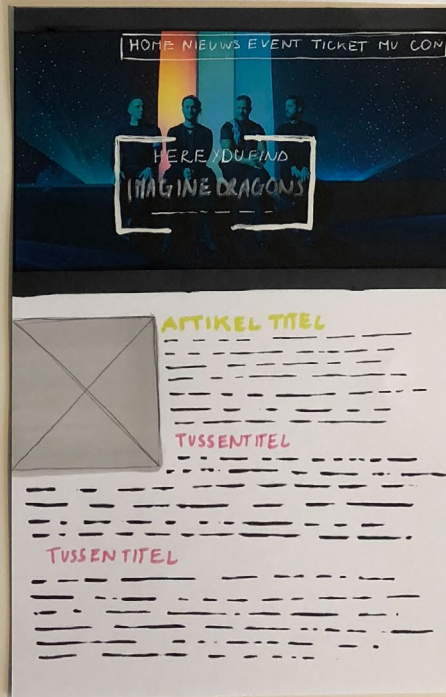 HOME NIEUWS EVENT TICKET MV CON
HERE YOU FIND
IMAGINE DRAGONS
ARTIKEL TITEL
TUSSENTITEL
TUSSENTITEL